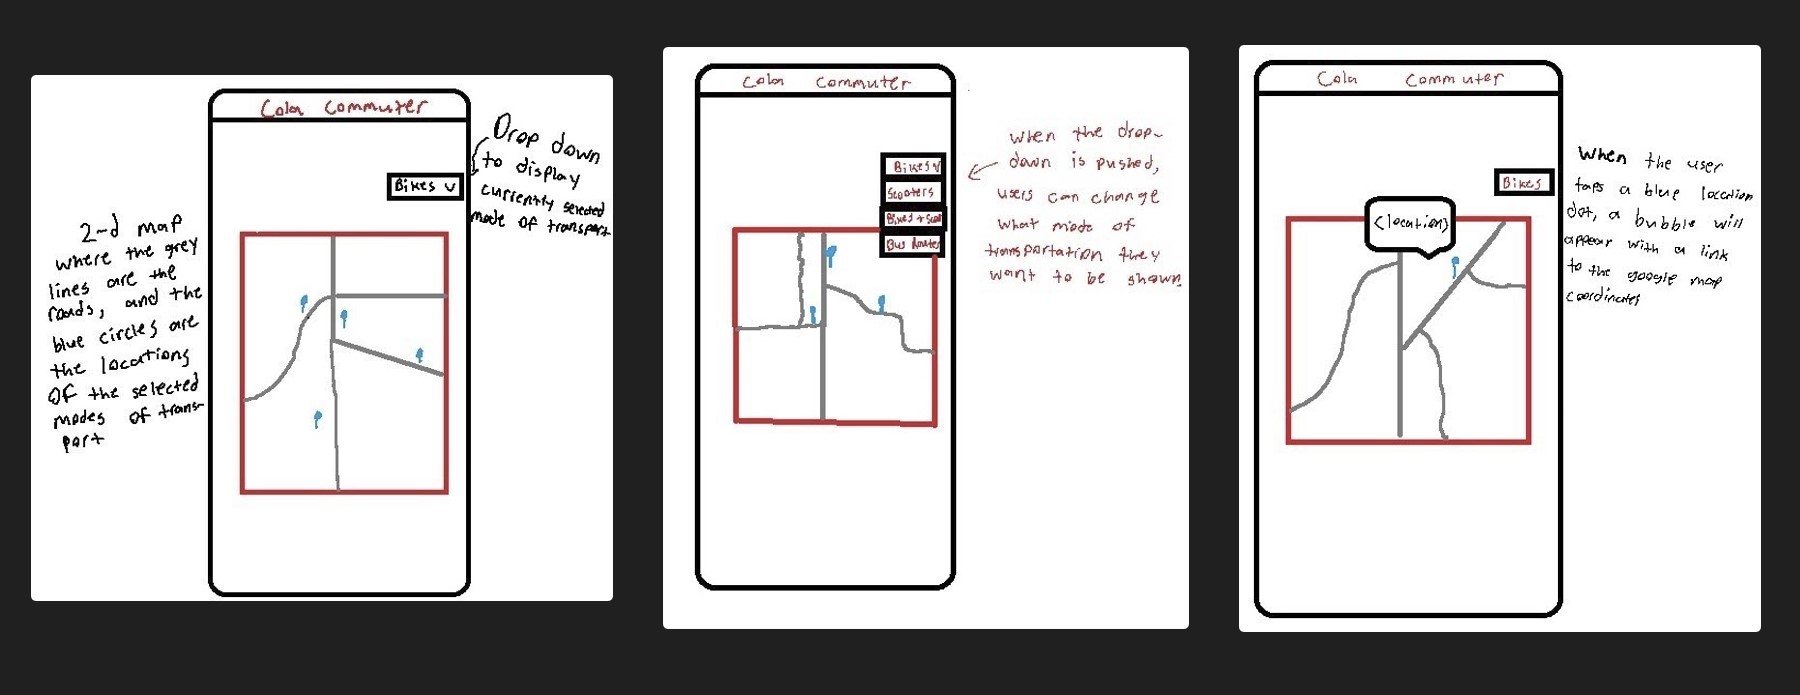 Cola Commuter
Drop down
to display
currently selected
mode of transport
Bikes v
2-d map
where the grey
lines are the
roads, and the
blue circles are
the locations
Of the selected
modes of trans-
port
Cola Commuter
Bikes v
Scooters
Bikes + Scoot
Bus Routes
when the drop-
down is pushed,
users can change
what mode of
transportation they
want to be shown
Cola Commuter
Bikes
<location>
When the user
taps a blue location
dot, a bubble will
appear with a link
to the google map
coordinates